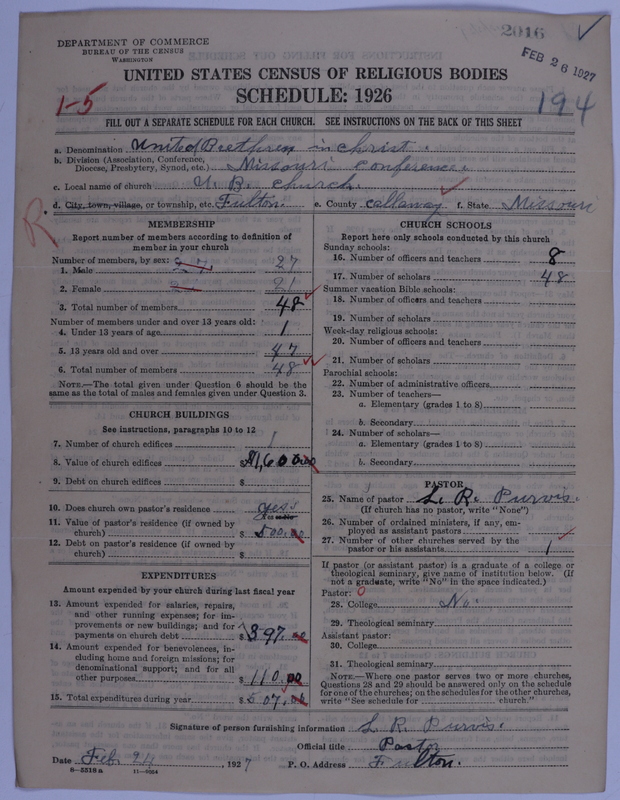 2016
FEB 26 1927
DEPARTMENT OF COMMERCE
BUREAU OF THE CENSUS
WASHINGTON
UNITED STATES CENSUS OF RELIGIOUS BODIES
SCHEDULE: 1926
1-5
194
FILL OUT A SEPARATE SCHEDULE FOR EACH CHURCH. SEE INSTRUCTIONS ON THE BACK OF THIS SHEET
a. Denomination United Brethren in Christ.
b. Division (Association, Conference, Diocese, Presbytery, Synod, etc.) Missouri Conference.
c. Local name of church U. B. Church.
d. City, town, village, or township, etc. Fulton. e. County Callaway f. State Missouri
R
MEMBERSHIP
Report number of members according to definition of
member in your church
Number of members, by sex:
1. Male 27 27
2. Female 21 21
3. Total number of members 48
Number of members under and over 13 years old:
4. Under 13 years of age 1
5. 13 years old and over 47
6. Total number of members 48
NOTE.—The total given under Question 6 should be the
same as the total of males and females given under Question 3.
CHURCH BUILDINGS
See instructions, paragraphs 10 to 12
7. Number of church edifices 1
8. Value of church edifices $1,600.00
9. Debt on church edifices $
10. Does church own pastor's residence yes
11. Value of pastor's residence (if owned by
church) $ 500.00
12. Debt on pastor's residence (if owned by
church) $
EXPENDITURES
Amount expended by your church during last fiscal year
13. Amount expended for salaries, repairs,
and other running expenses; for im-
provements or new buildings; and for
payments on church debt $ 397.00
14. Amount expended for benevolences, in-
cluding home and foreign missions; for
denominational support; and for all
other purposes $ 110.00
15. Total expenditures during year $ 507.00
CHURCH SCHOOLS
Report here only schools conducted by this church
Sunday schools:
16. Number of officers and teachers 8
17. Number of scholars 48
Summer vacation Bible schools:
18. Number of officers and teachers
19. Number of scholars
Week-day religious schools:
20. Number of officers and teachers
21. Number of scholars
Parochial schools:
22. Number of administrative officers
23. Number of teachers—
a. Elementary (grades 1 to 8)
b. Secondary
24. Number of scholars—
a. Elementary (grades 1 to 8)
b. Secondary
PASTOR
25. Name of pastor L. R. Purvis.
(If church has no pastor, write "None")
26. Number of ordained ministers, if any, em-
ployed as assistant pastors
27. Number of other churches served by the
pastor or his assistants 1
If pastor (or assistant pastor) is a graduate of a college or
theological seminary, give name of institution below. (If
not a graduate, write "No" in the space indicated.)
Pastor: 0
28. College No.
29. Theological seminary
Assistant pastor:
30. College
31. Theological seminary
NOTE.—Where one pastor serves two or more churches,
Questions 28 and 29 should be answered only on the schedule
for one of the churches; on the schedules for the other churches,
write "See schedule for church."
Signature of person furnishing information L. R. Purvis.
Official title Pastor
Date Feb. 24, 1927 P. O. Address Fulton.
8—5518a 11—9024